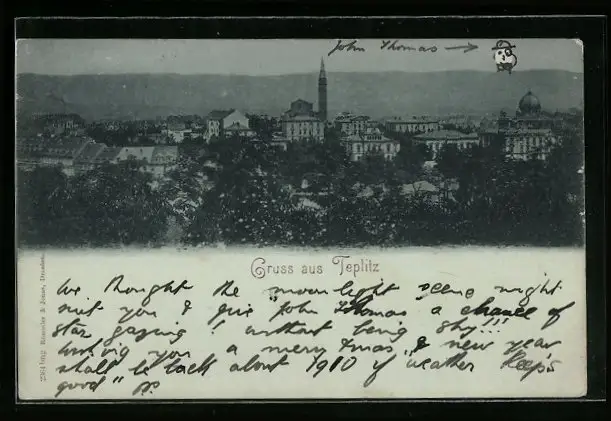 John Thomas →
Gruss aus Teplitz
We thought the moonlight scene might
suit you & give "John Thomas a chance of
star gazing" without being shy!!!
wishing you a merry Xmas & new year
shall be back about 1910 if weather keeps
good" ps.
Römmler & Jonas, Dresden.